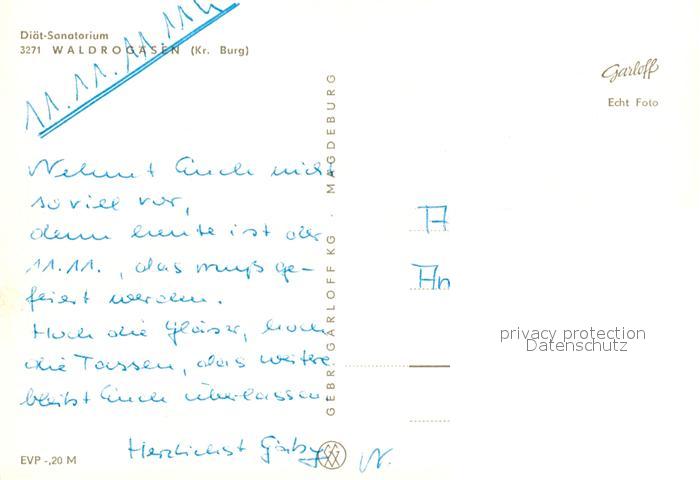 Diät-Sanatorium
3271 WALDROGÄSEN (Kr. Burg)
11.11.11 11
Nehmt Euch nicht
so viel vor,
denn heute ist der
11.11., das muß ge-
feiert werden.
Hoch die Gläser, hoch
die Tassen, das weitere
bleibt Euch überlassen
Herzlichst Gaby
EVP -,20 M
GEBR. GARLOFF KG · MAGDEBURG
Garloff
Echt Foto
A
An
privacy protection
Datenschutz